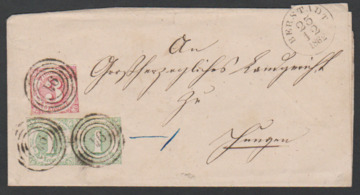 BERSTADT
An
Großherzogliches Landgericht
Zu
Hungen